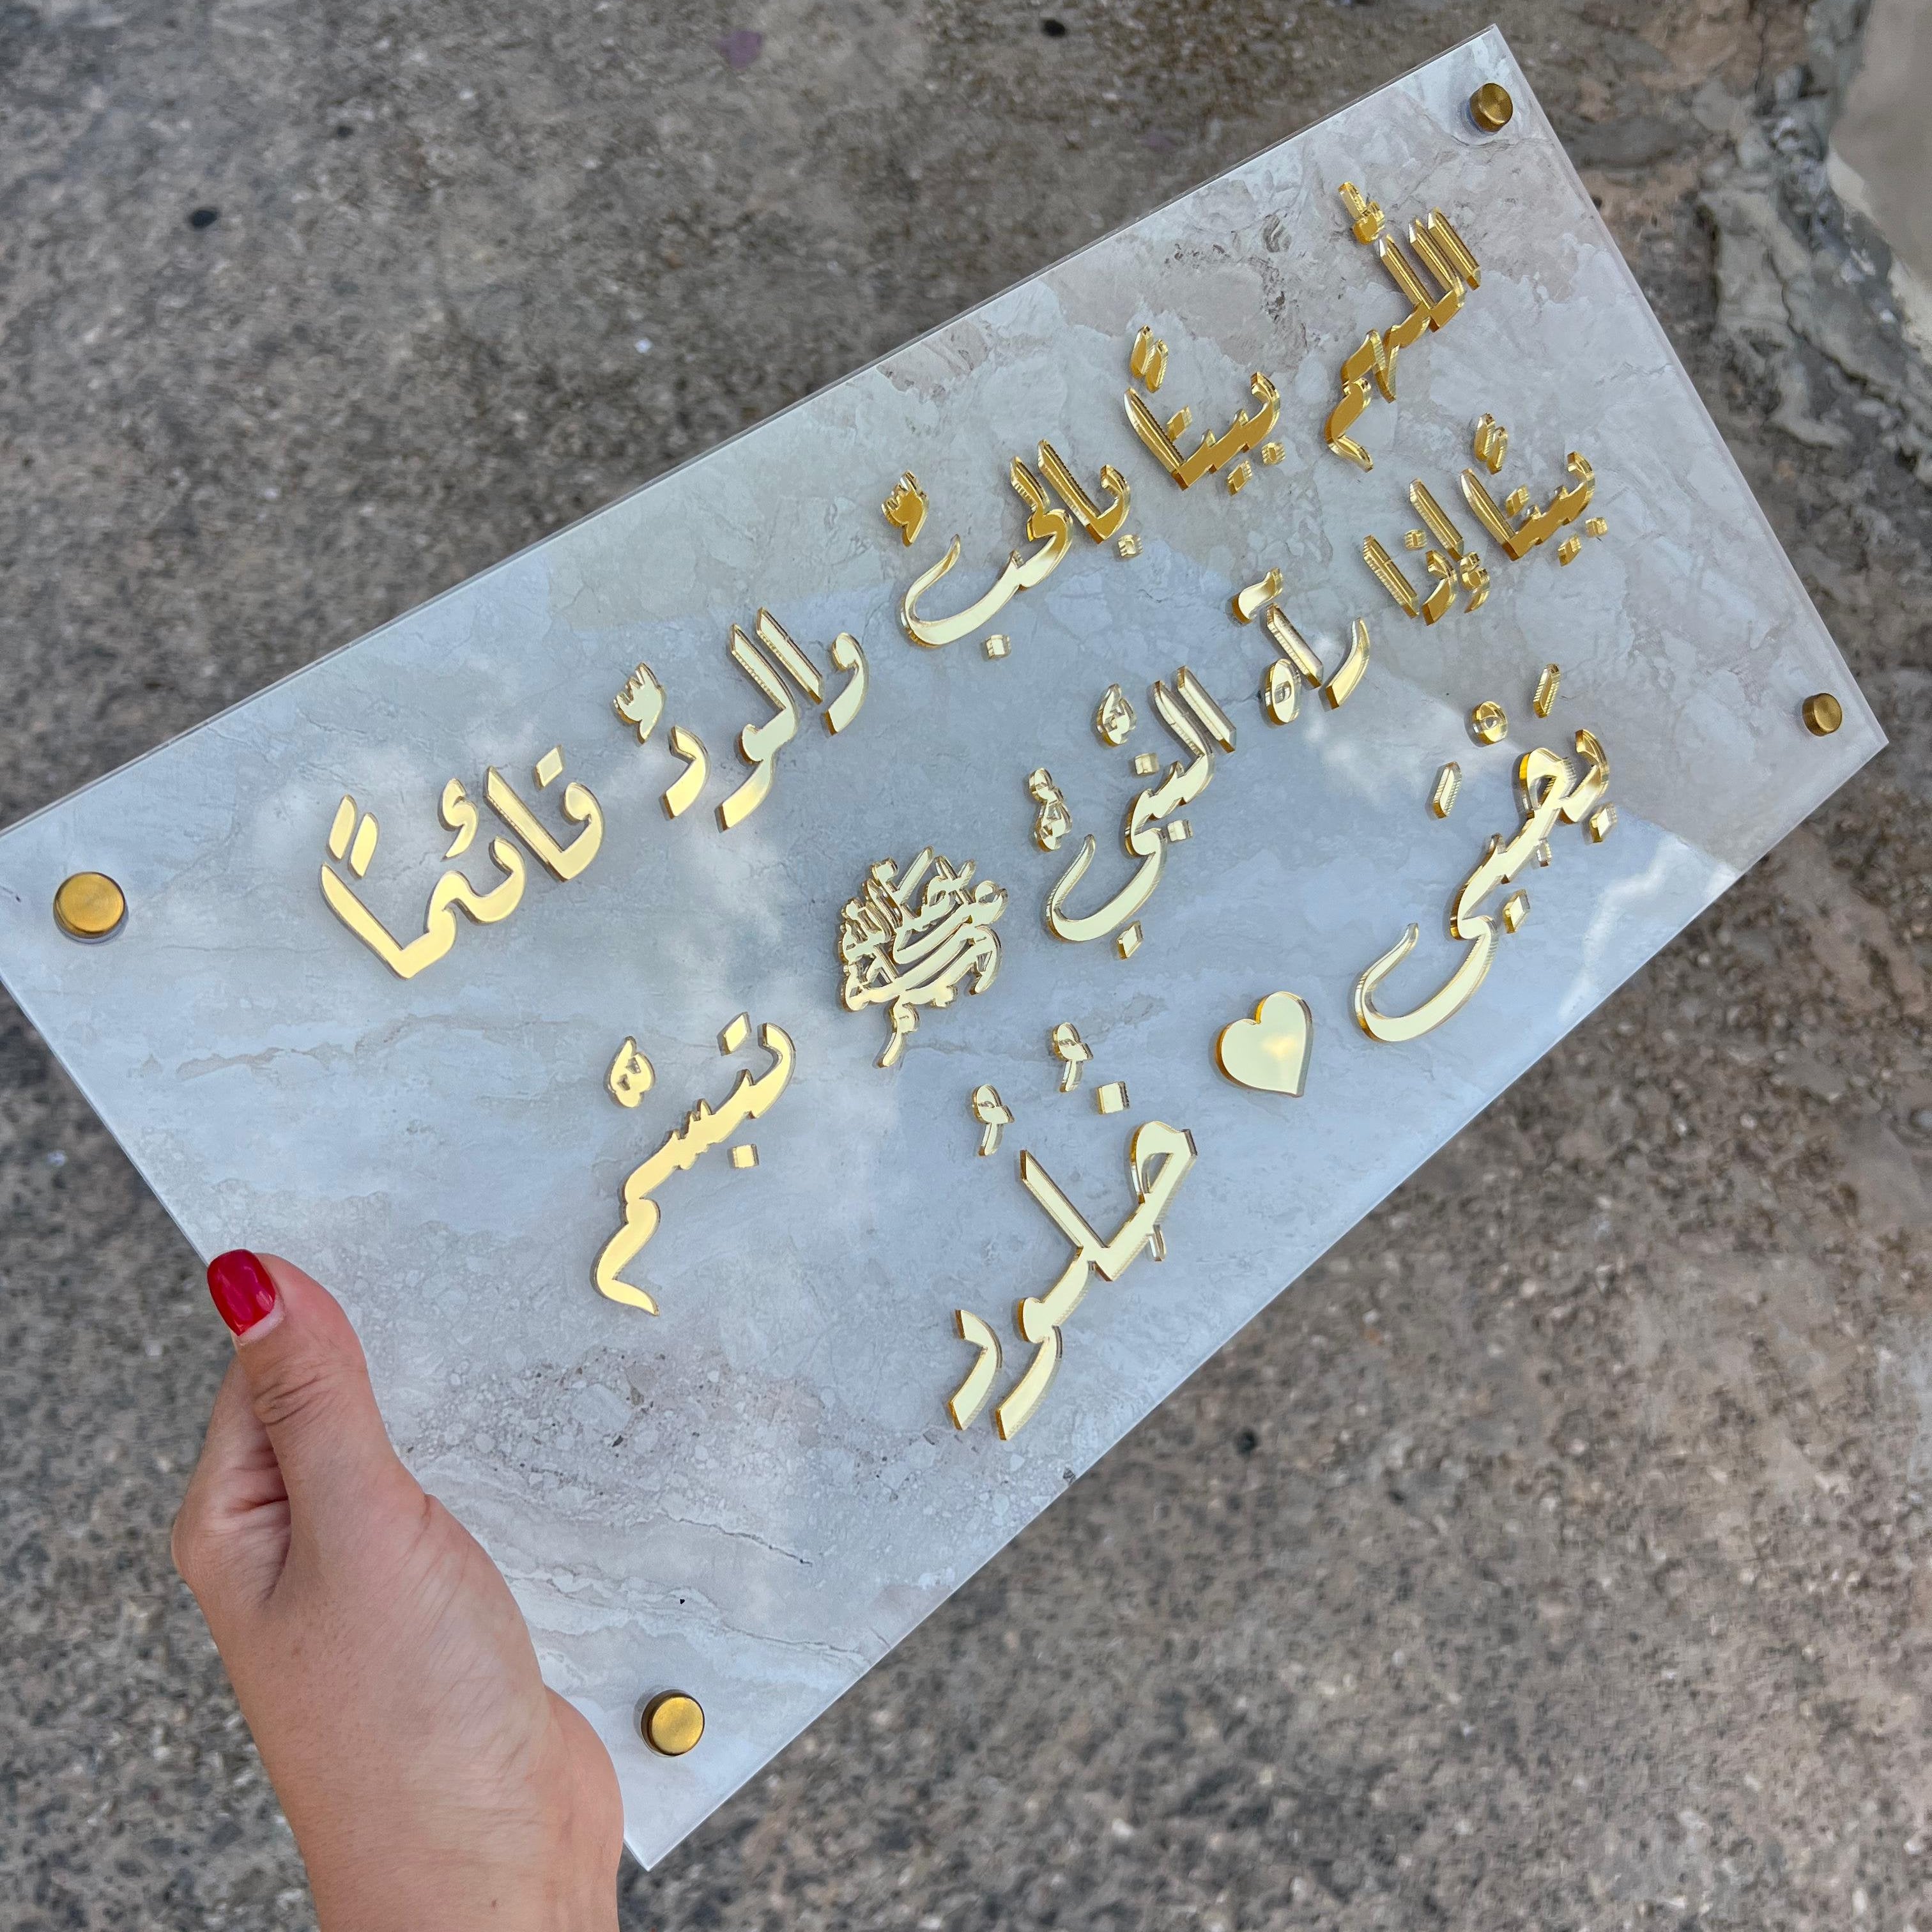 اللّٰهم بيتًا بالحبُّ والودُّ قائمًا
بيتًا إذا رآه النّبيُّ ﷺ تبسّم
يَحْيَى ♥ خُلُود